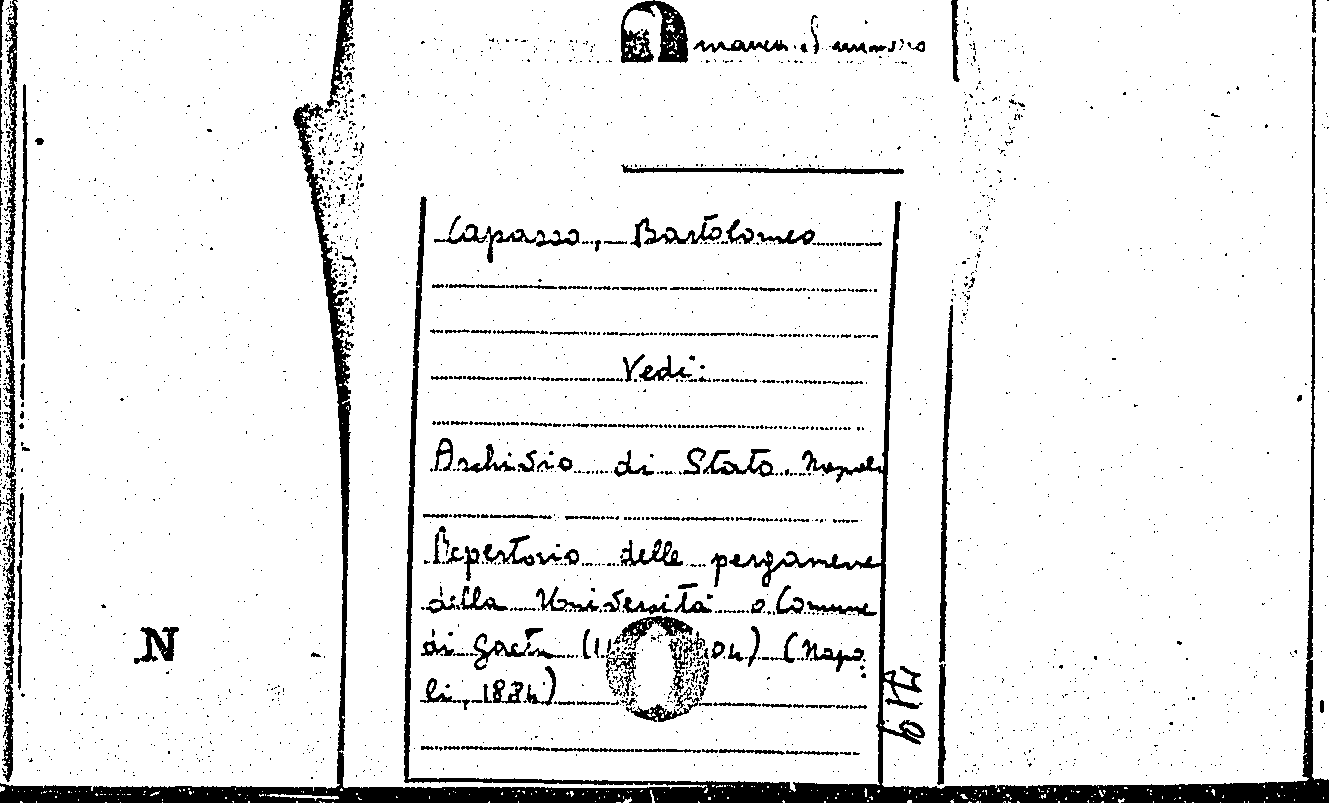 manca il numero
Capasso, Bartolomeo
Vedi:
Archivio di Stato. Napoli
Repertorio delle pergamene
della Università o Comune
di Gaeta (11 04) (Napo
li, 1884)
N